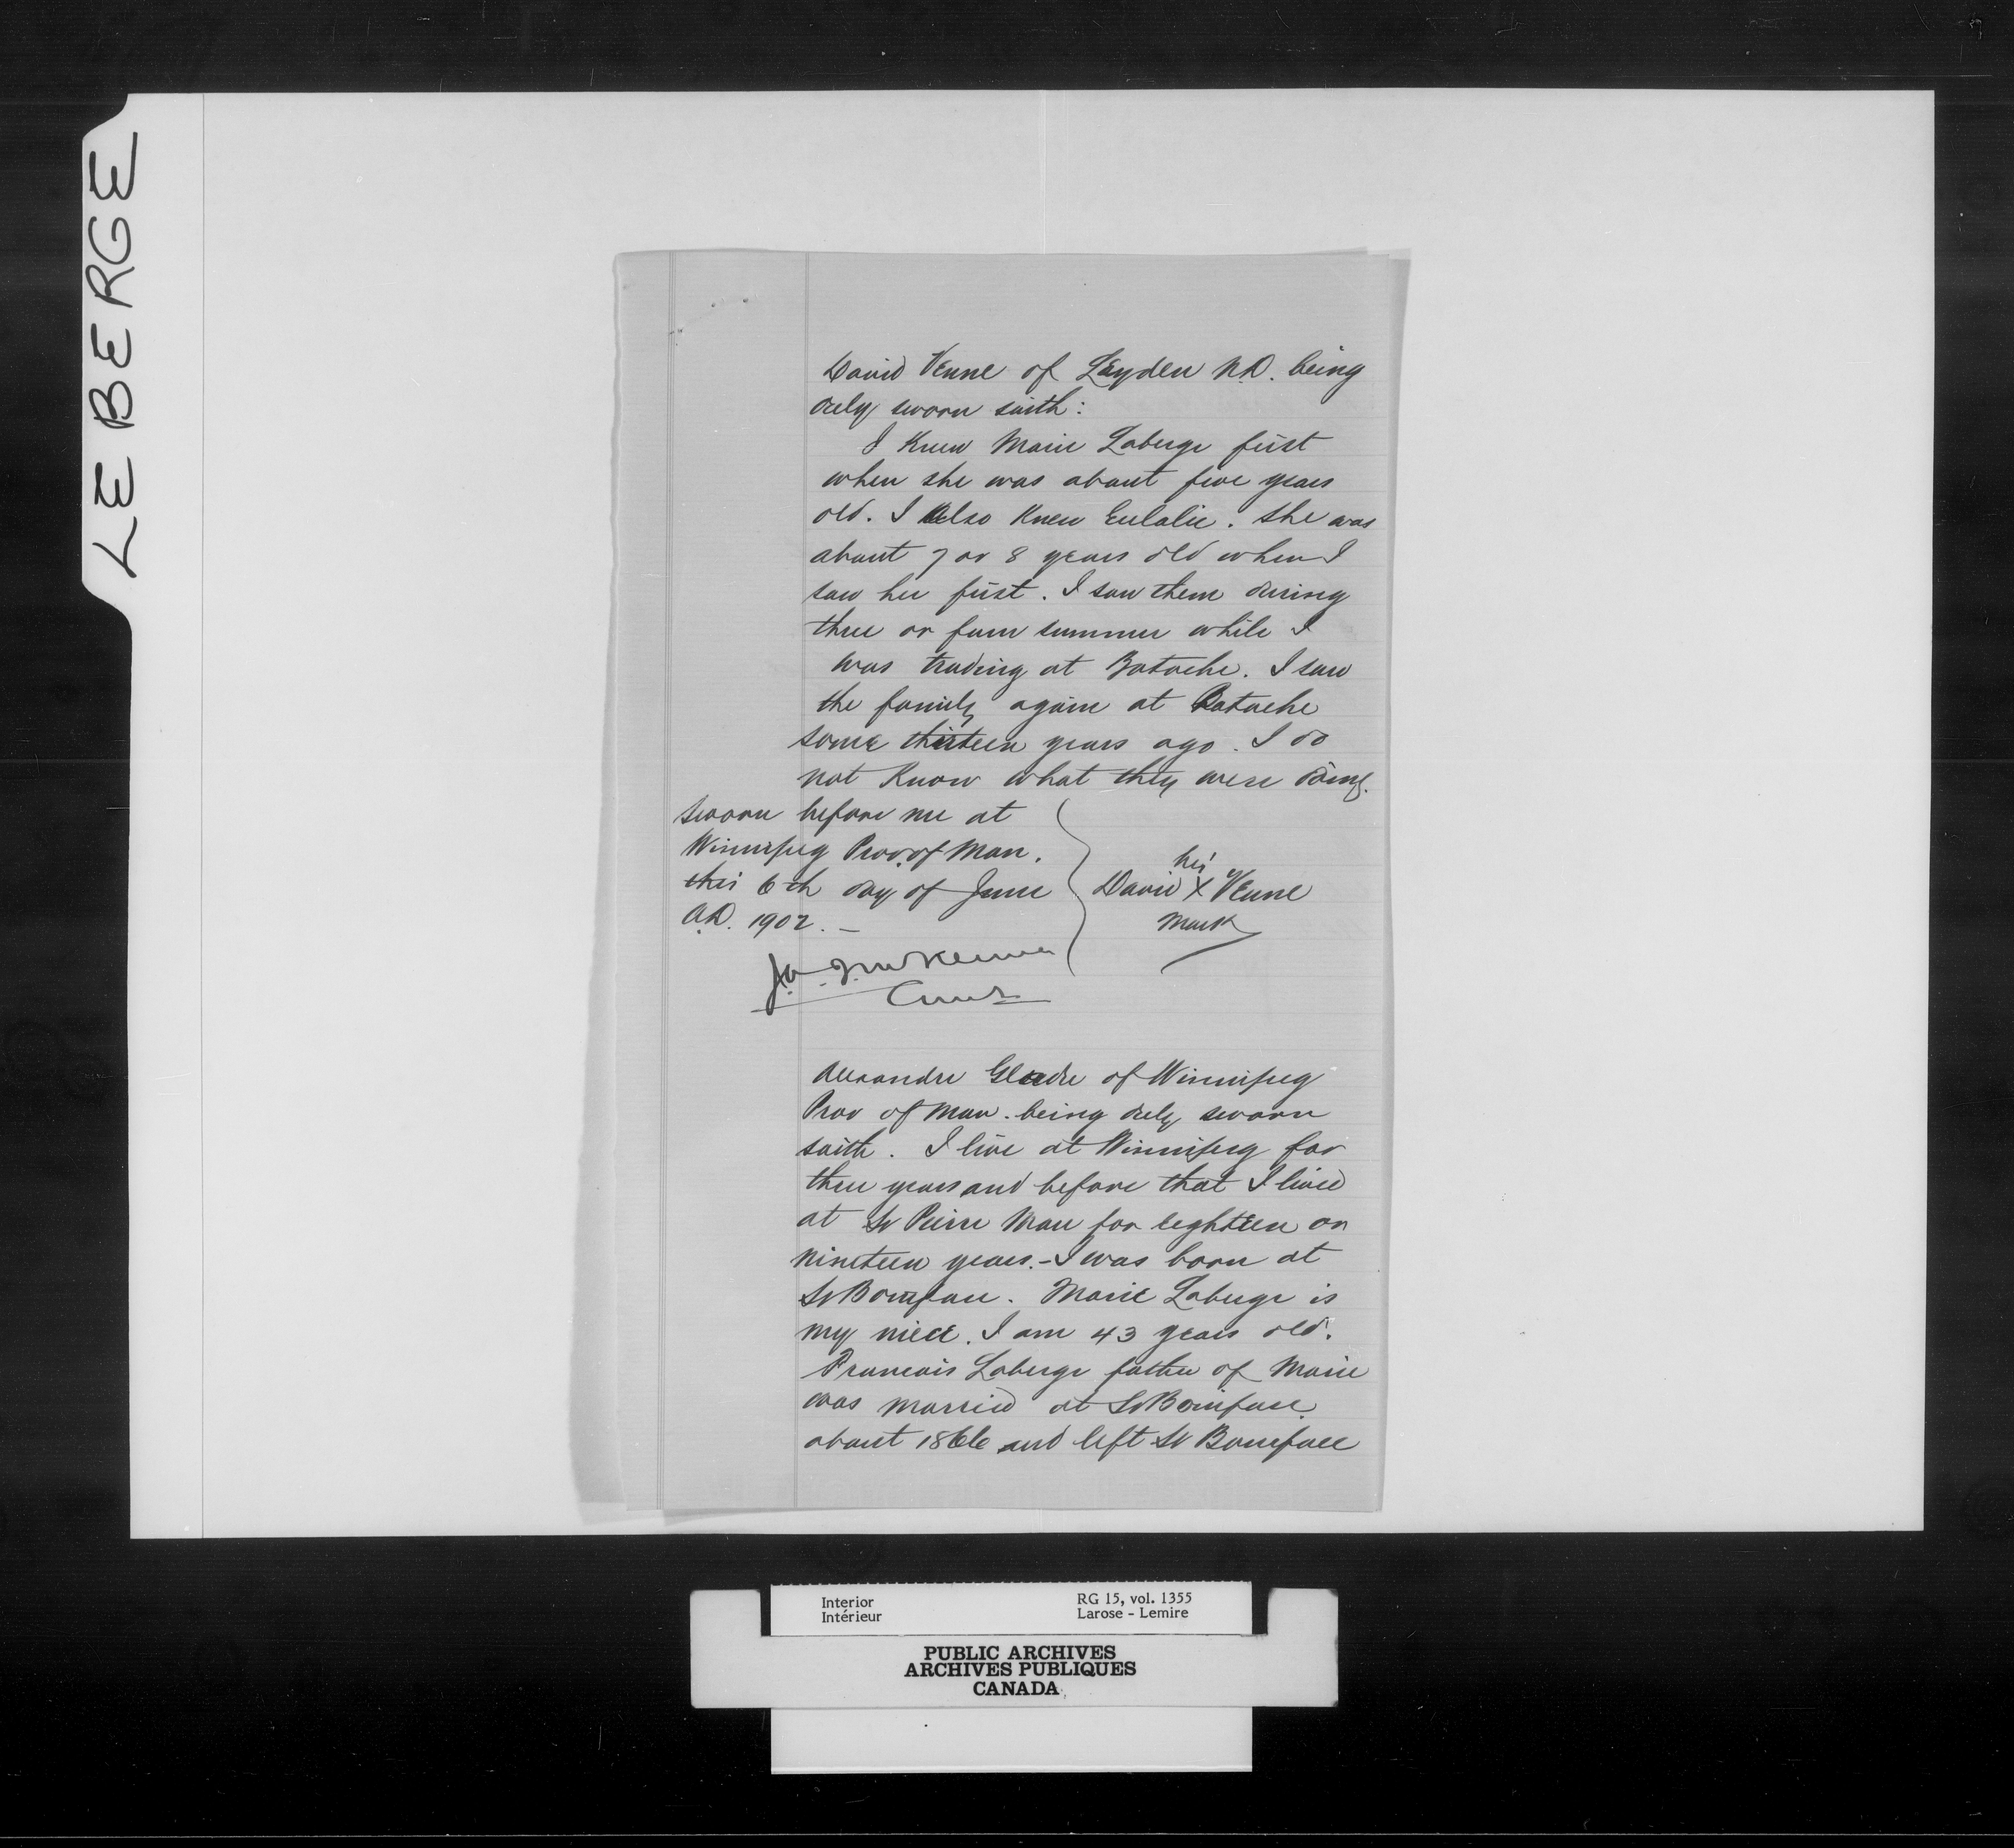 LEBERGE
David Venne of Leyden N.D. being
duly sworn saith:
I Knew Marie Laberge first
when she was about five years
old. I also Knew Eulalie. She was
about 7 or 8 years old when I
saw her first. I saw them during
three or four summer while I
was trading at Batoche. I saw
the family again at Batoche
some thirteen years ago. I do
not Know what they were doing.
Sworn before me at
Winnipeg Prov. of Man.
this 6th day of June
A.D. 1902. –
his
David X Venne
mark
J.A.J. McKenna
Comr
Alexandre of Winnipeg
Prov of Man. being duly sworn
saith. I live at Winnipeg for
three years and before that I lived
at St Pierre Man for eighteen or
nineteen years. – I was born at
St Boniface. Marie Laberge is
my niece. I am 43 years old.
Francois Laberge father of Marie
was married at St Boniface
about 1866 and left St Boniface
Interior
Intérieur
RG 15, vol. 1355
Larose - Lemire
PUBLIC ARCHIVES
ARCHIVES PUBLIQUES
CANADA